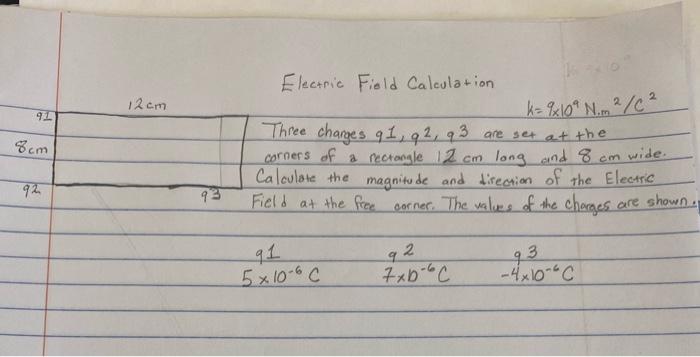 Electric Field Calculation
12cm
k=9x10⁹ N.m²/C²
q1
Three charges q1, q2, q3 are set at the
8cm
corners of a rectangle 12 cm long and 8 cm wide.
Calculate the magnitude and direction of the Electric
q2
q3
Field at the free corner. The values of the charges are shown.
q1 q2 q3
5x10⁻⁶ C 7x10⁻⁶ C -4x10⁻⁶ C